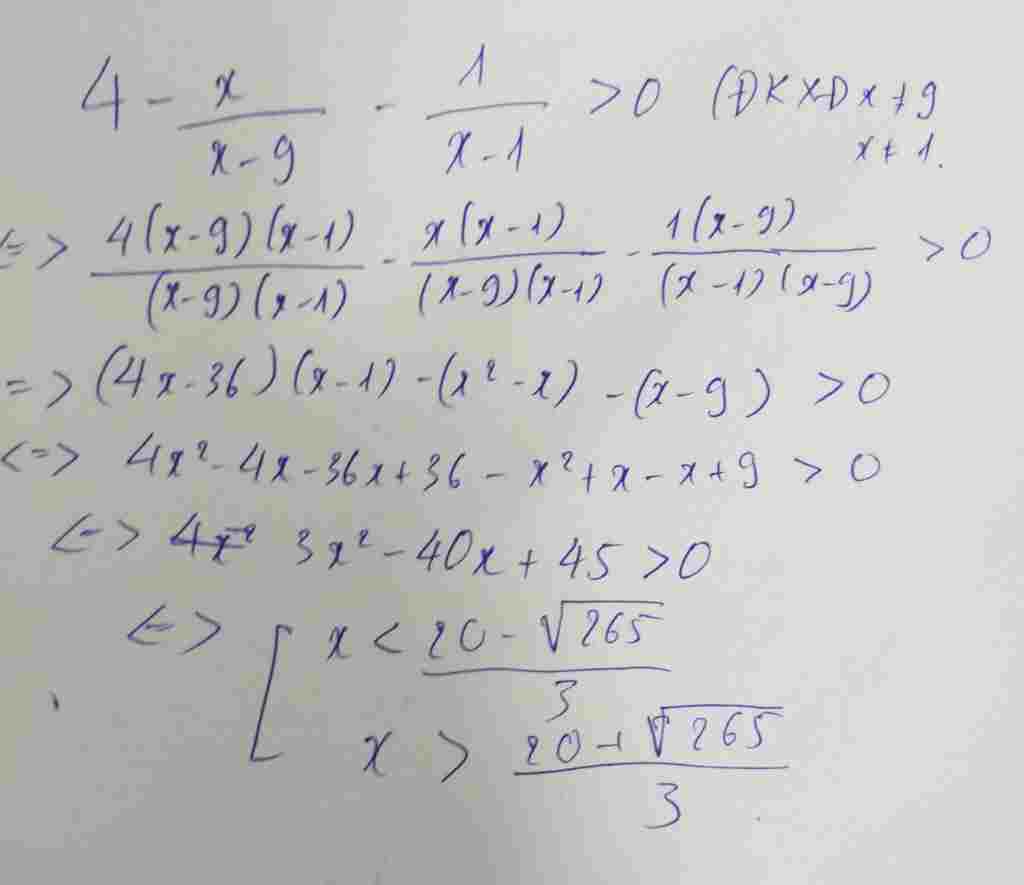 4 - \frac{x}{x-9} - \frac{1}{x-1} > 0 (ĐKXĐ x ≠ 9
x ≠ 1.
<=> \frac{4(x-9)(x-1)}{(x-9)(x-1)} - \frac{x(x-1)}{(x-9)(x-1)} - \frac{1(x-9)}{(x-1)(x-9)} > 0
=> (4x-36)(x-1) - (x² - x) - (x-9) > 0
<=> 4x² - 4x - 36x + 36 - x² + x - x + 9 > 0
<=> 4x² 3x² - 40x + 45 > 0
<=> [ x < \frac{20 - \sqrt{265}}{3}
x > \frac{20 + \sqrt{265}}{3}